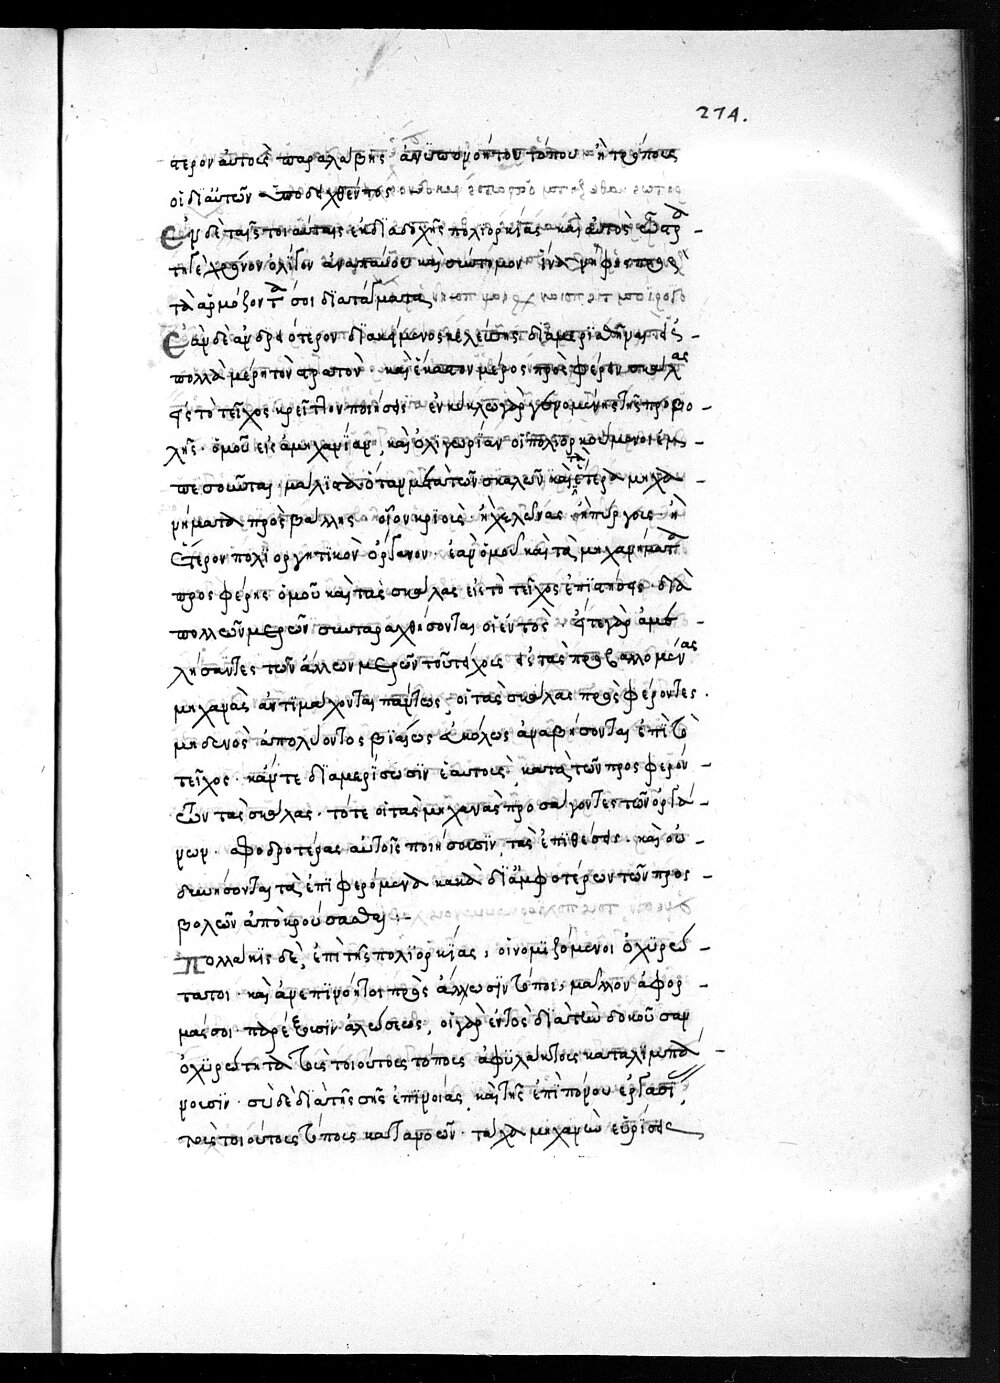 274.
τερον αὐτοὺς παραλάβης ἀνυπονοήτου τόπου ἢ τρόπους
οἱ διαὐτῶν ὑποδεχθέντος
Ἐν δὲ ταῖς τοιαύταις ἐκ διαδοχῆς πολιορκίαις καὶ αὐτὸς
χρόνον ὀλίγον ἀναπαύου καὶ σύντομον ἵνα
τὰ ἁρμόζοντα σοι διατάγματα
Ἐὰν δὲ ἀνδρειότερον διακείμενος κελεύσης διαμερισθῆναι εἰς
πολλὰ μέρη τὸν στρατὸν· καὶ ἕκαστον μέρος προσφέρειν σκάλας
εἰς τὸ τεῖχος κρεῖττον ποιήσεις· ἐν κύκλω γὰρ γινομένης τῆς προσβο-
λῆς· ὁμοῦ εἰς ἀμηχανίαν, καὶ ὀλιγωρίαν οἱ πολιορκούμενοι ἐμ-
πεσοῦνται· μάλιστα ὅταν μετὰ τῶν σκαλῶν καὶ τὰ ἕτερα μηχα-
νήματα προσβάλλης· οἷον κριοὺς ἢ χελώνας ἢ πύργους ἢ
ἕτερον πολιοργητικὸν ὄργανον· ἐὰν ὁμοῦ καὶ τὰ μηχανήματα
προσφέρης ὁμοῦ καὶ τὰς σκάλας εἰς τὸ τεῖχος ἐπιστήσεις· διὰ
πολλῶν μερῶν συνταραχθήσονται οἱ ἐντὸς· εἴτε γὰρ ἀμε-
λήσαντες τῶν ἄλλων μερῶν τοῦ τείχους εἰς τὰς προσβαλλομένας
μηχανὰς ἀντιμάχονται πάντως, οἱ τὰς σκάλας προσφέροντες
μηδενὸς ἀπολύοντος βιαίως εὐκόλως ἀναβήσονται ἐπὶ τὸ
τεῖχος· κἄν τε διαμερίσωσιν ἑαυτοὺς, κατὰ τῶν προσφερόν-
των τὰς σκάλας· τότε οἱ τὰς μηχανὰς προσάγοντες τῶν ὀργά-
νων· σφοδροτέρας αὐτοῖς ποιήσουσιν, τὰς ἐπιθέσεις· καὶ οὐ
δυνήσονται τὰ ἐπιφερόμενα κακὰ δι ἀμφοτέρων τῶν προσ-
βολῶν ἀποκρούσασθαι:-
Πολλάκις δὲ, ἐπὶ τῆς πολιορκίας, οἱ νομιζόμενοι ὀχυρώ-
τατοι· καὶ ἀνεπινόητοι πρὸς ἅλωσιν τόποι, μᾶλλον ἀφορ-
μάς σοι παρέξουσιν ἁλώσεως, οἱ γὰρ ἐντὸς διὰ τὴν δοκοῦσαν
ὀχυρώτητα τοὺς τοιούτους τόπους ἀφυλάκτους καταλιμπά-
νουσιν· σὺ δὲ διὰ τῆς σῆς ἐπινοίας, καὶ τῆς ἐπιπόνου ἐργασί
τοὺς τοιούτους τόπους κατανοῶν· τάχα μηχανὴν εὑρίσει